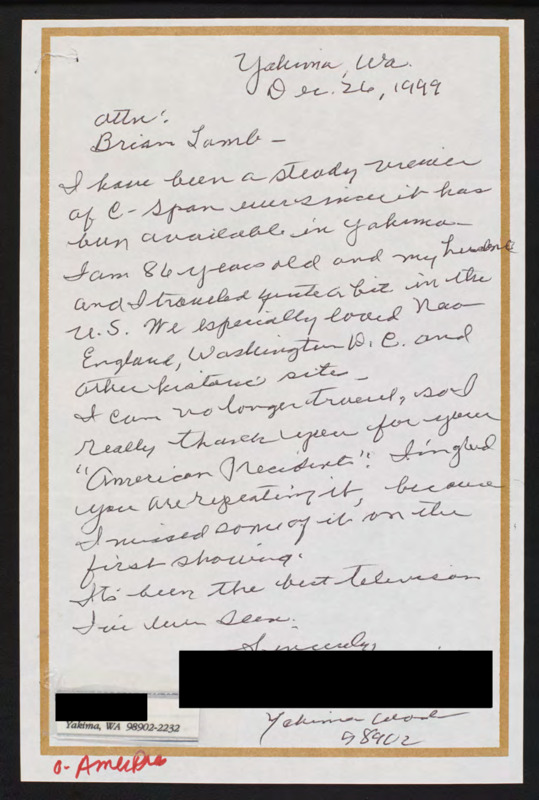 Yakima, Wa.
Dec. 26, 1999
attn:
Brian Lamb —
I have been a steady viewer
of C-Span ever since it has
been available in Yakima
I am 86 years old and my husband
and I traveled quite a bit in the
U.S. We especially loved New
England, Washington D.C. and
other historic sites
I can no longer travel, so I
really thank you for your
"American Presidents". I'm glad
you are repeating it, because
I missed some of it on the
first showing.
It's been the best television
I've ever seen.
Sincerely,
Yakima, WA 98902-2232
Yakima Wash
98902